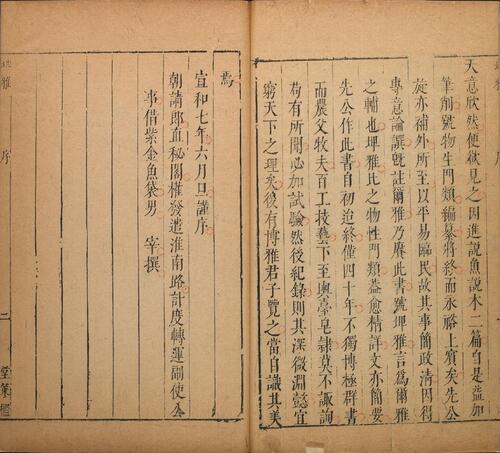 天意欣然便欲見之因進說魚說木二篇自是益加
筆削號物生門類編纂將終而永裕上賓矣先公
旋亦補外所至以平易臨民故其事簡政清因得
專意論譔旣註爾雅乃賡此書號埤雅言爲爾雅
之輔也埤雅比之物性門類益愈精詳文亦簡要
先公作此書自初迨終僅四十年不獨博極群書
而農父牧夫百工技藝下至輿臺皁隷莫不諏詢
苟有所聞必加試驗然後紀錄則其深微淵懿宜
窮天下之理矣後有博雅君子覽之當自識其美
焉
宣和七年六月旦謹序
朝請郎直秘閣權發遣淮南路計度轉運副使公
事借紫金魚袋男 宰撰
序
二